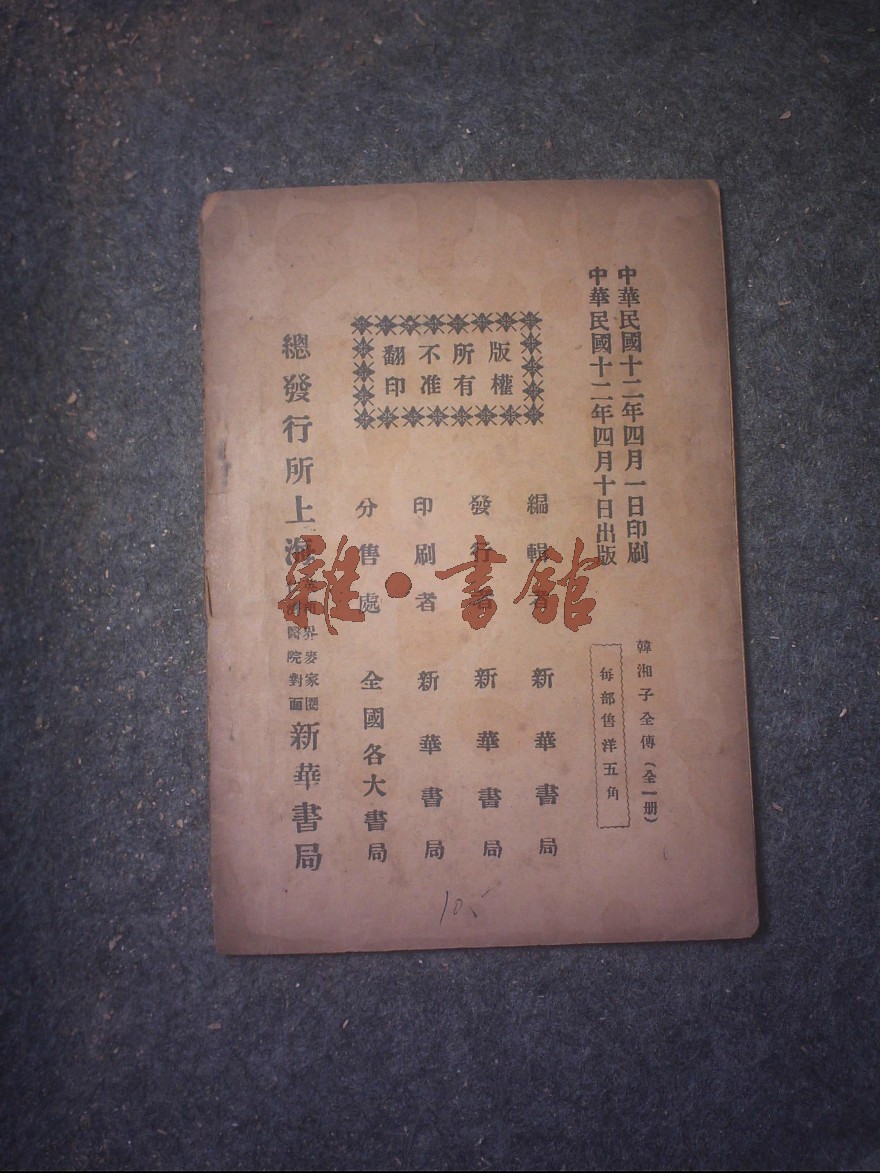 中華民國十二年四月一日印刷
中華民國十二年四月十日出版
韓湘子全傳(全一册)
每部售洋五角
版權
所有
不准
翻印
編輯者 新華書局
發行者 新華書局
印刷者 新華書局
分售處 全國各大書局
總發行所上海
界麥家圈
醫院對面
新華書局
10
雜·書館